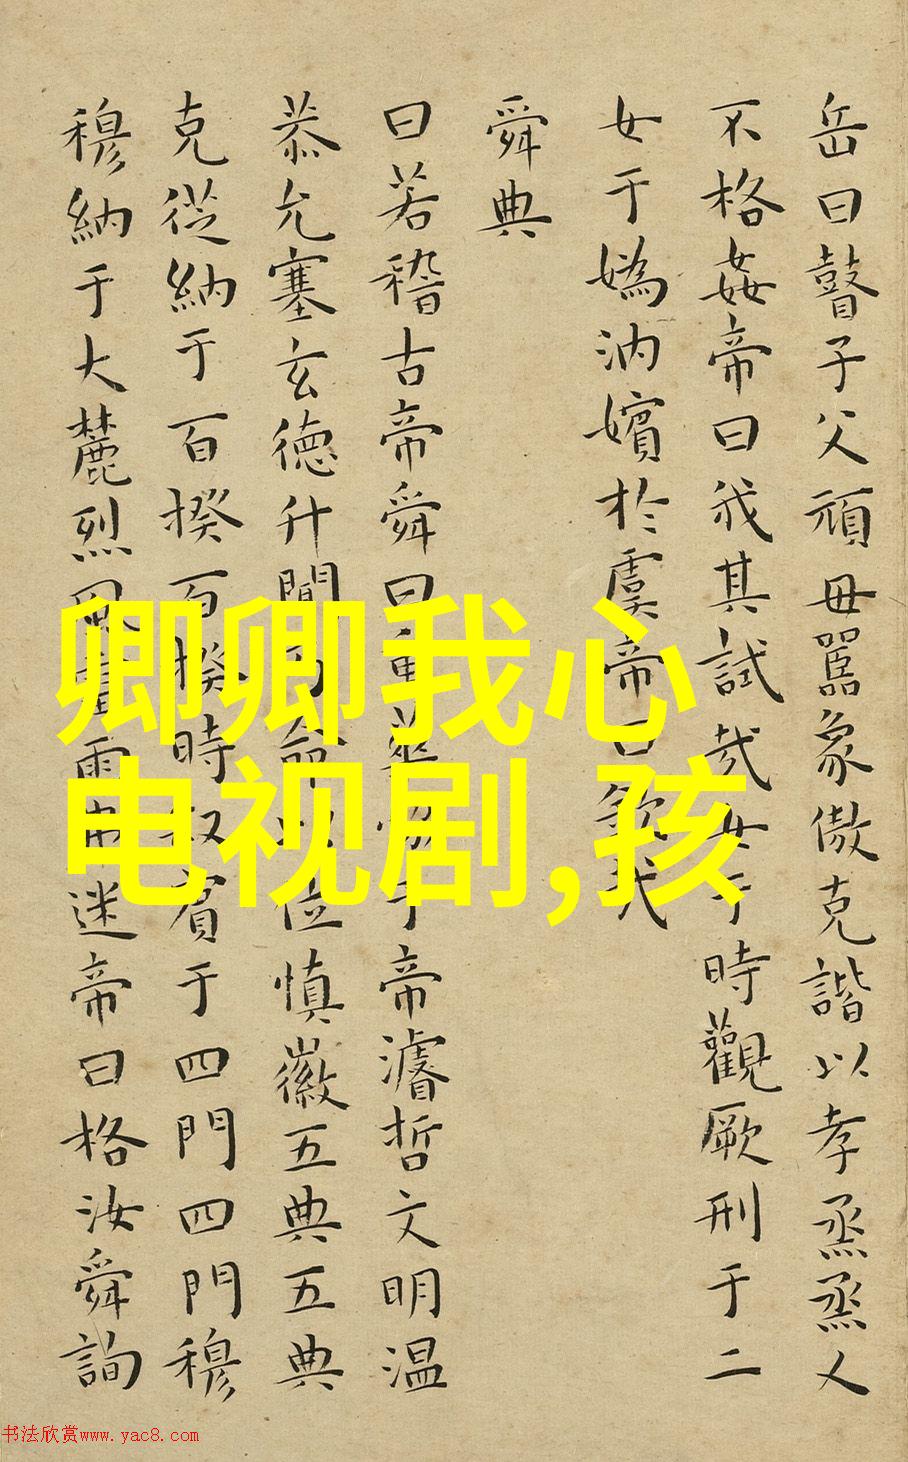 岳曰瞽子父頑母嚚象傲克諧以孝烝烝乂
不格姦帝曰我其試哉女于時觀厥刑于二
女于媯汭嬪於虞帝曰欽哉
舜典
曰若稽古帝舜曰重華協于帝濬哲文明温
恭允塞玄德升聞乃命以位慎徽五典五典
克從納于百揆百揆時叙賓于四門四門穆
穆納于大麓烈風雷雨弗迷帝曰格汝舜詢
卿卿我心
电视剧,孩
书法欣赏www.yac8.com